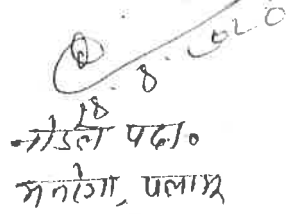 18.8.2020
नोडल पदा०
मनरेगा, पलामू